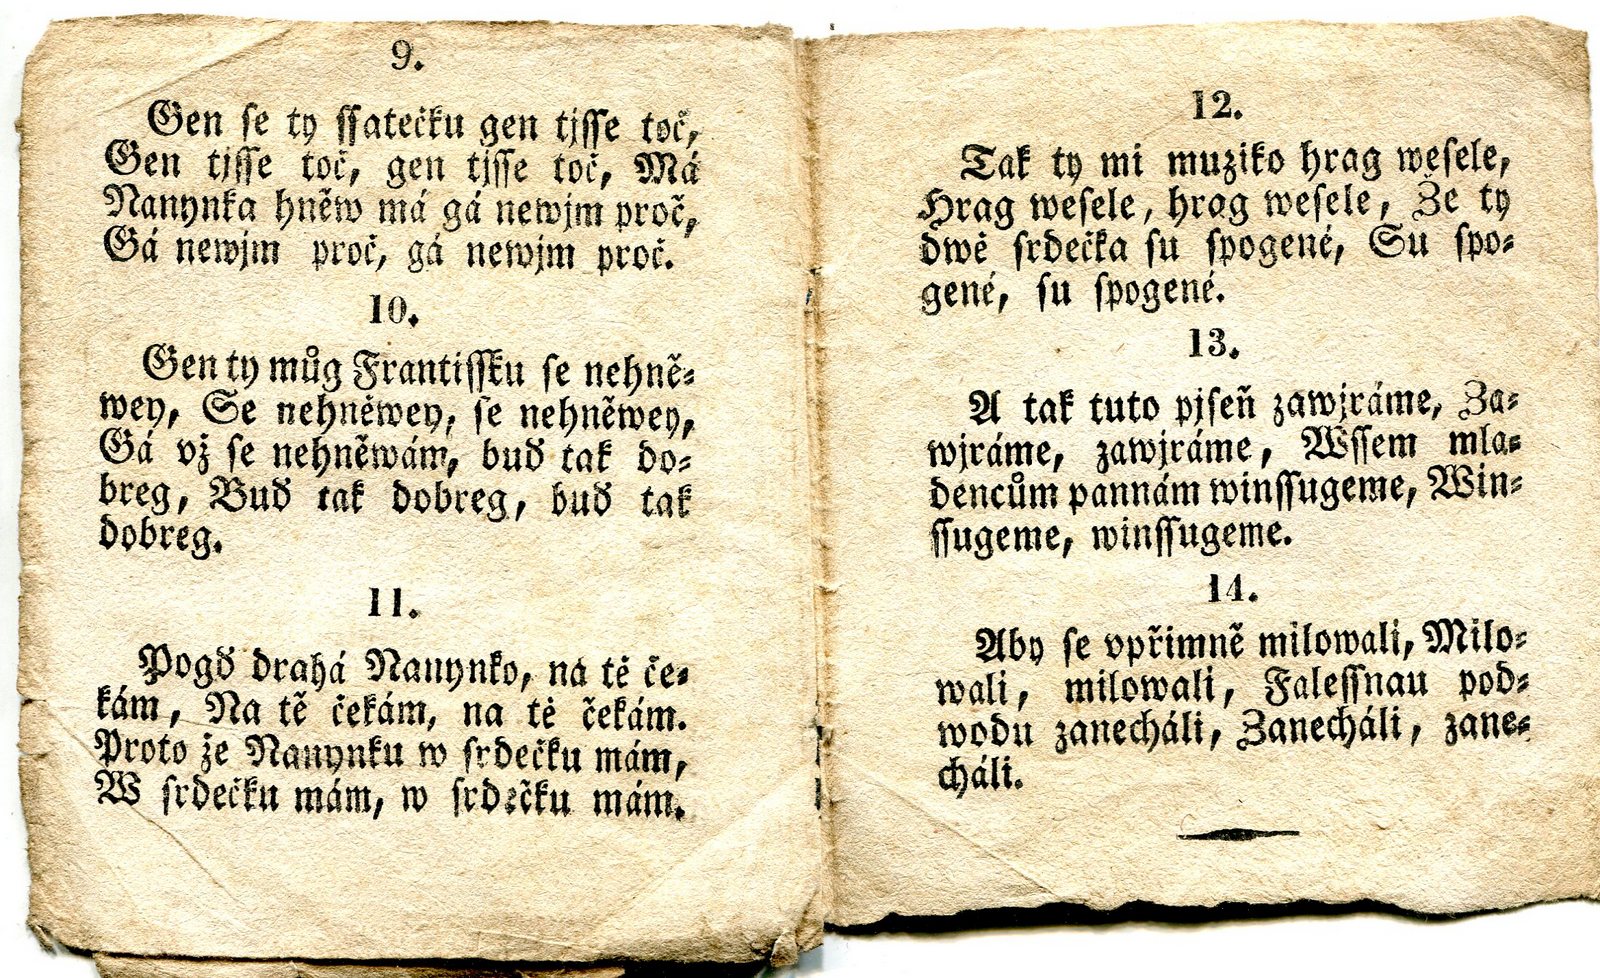 9.
Gen se ty ssatečku gen tjsse toč,
Gen tjsse toč, gen tjsse toč, Má
Nanynka hněw má gá newjm proč,
Gá newjm proč, gá newjm proč.
10.
Gen ty můg Frantissku se nehně-
wey, Se nehněwey, se nehněwey,
Gá vž se nehněwám, buď tak do-
breg, Buď tak dobreg, buď tak
dobreg.
11.
Pogď drahá Nanynko, na tě če-
kám, Na tě čekám, na tě čekám.
Proto že Nanynku w srdečku mám,
W srdečku mám, w srdečku mám.
12.
Tak ty mi muziko hrag wesele,
Hrag wesele, hrag wesele, Že ty
dwě srdečka su spogené, Su spo-
gené, su spogené.
13.
A tak tuto pjseň zawjráme, Za-
wjráme, zawjráme, Wssem mla-
dencům pannám winssugeme, Win-
ssugeme, winssugeme.
14.
Aby se vpřimně milowali, Milo-
wali, milowali, Falessnau pod-
wodu zanecháli, Zanecháli, zane-
cháli.